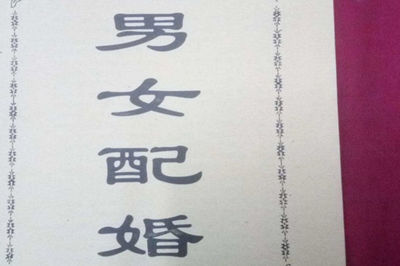 男女配婚